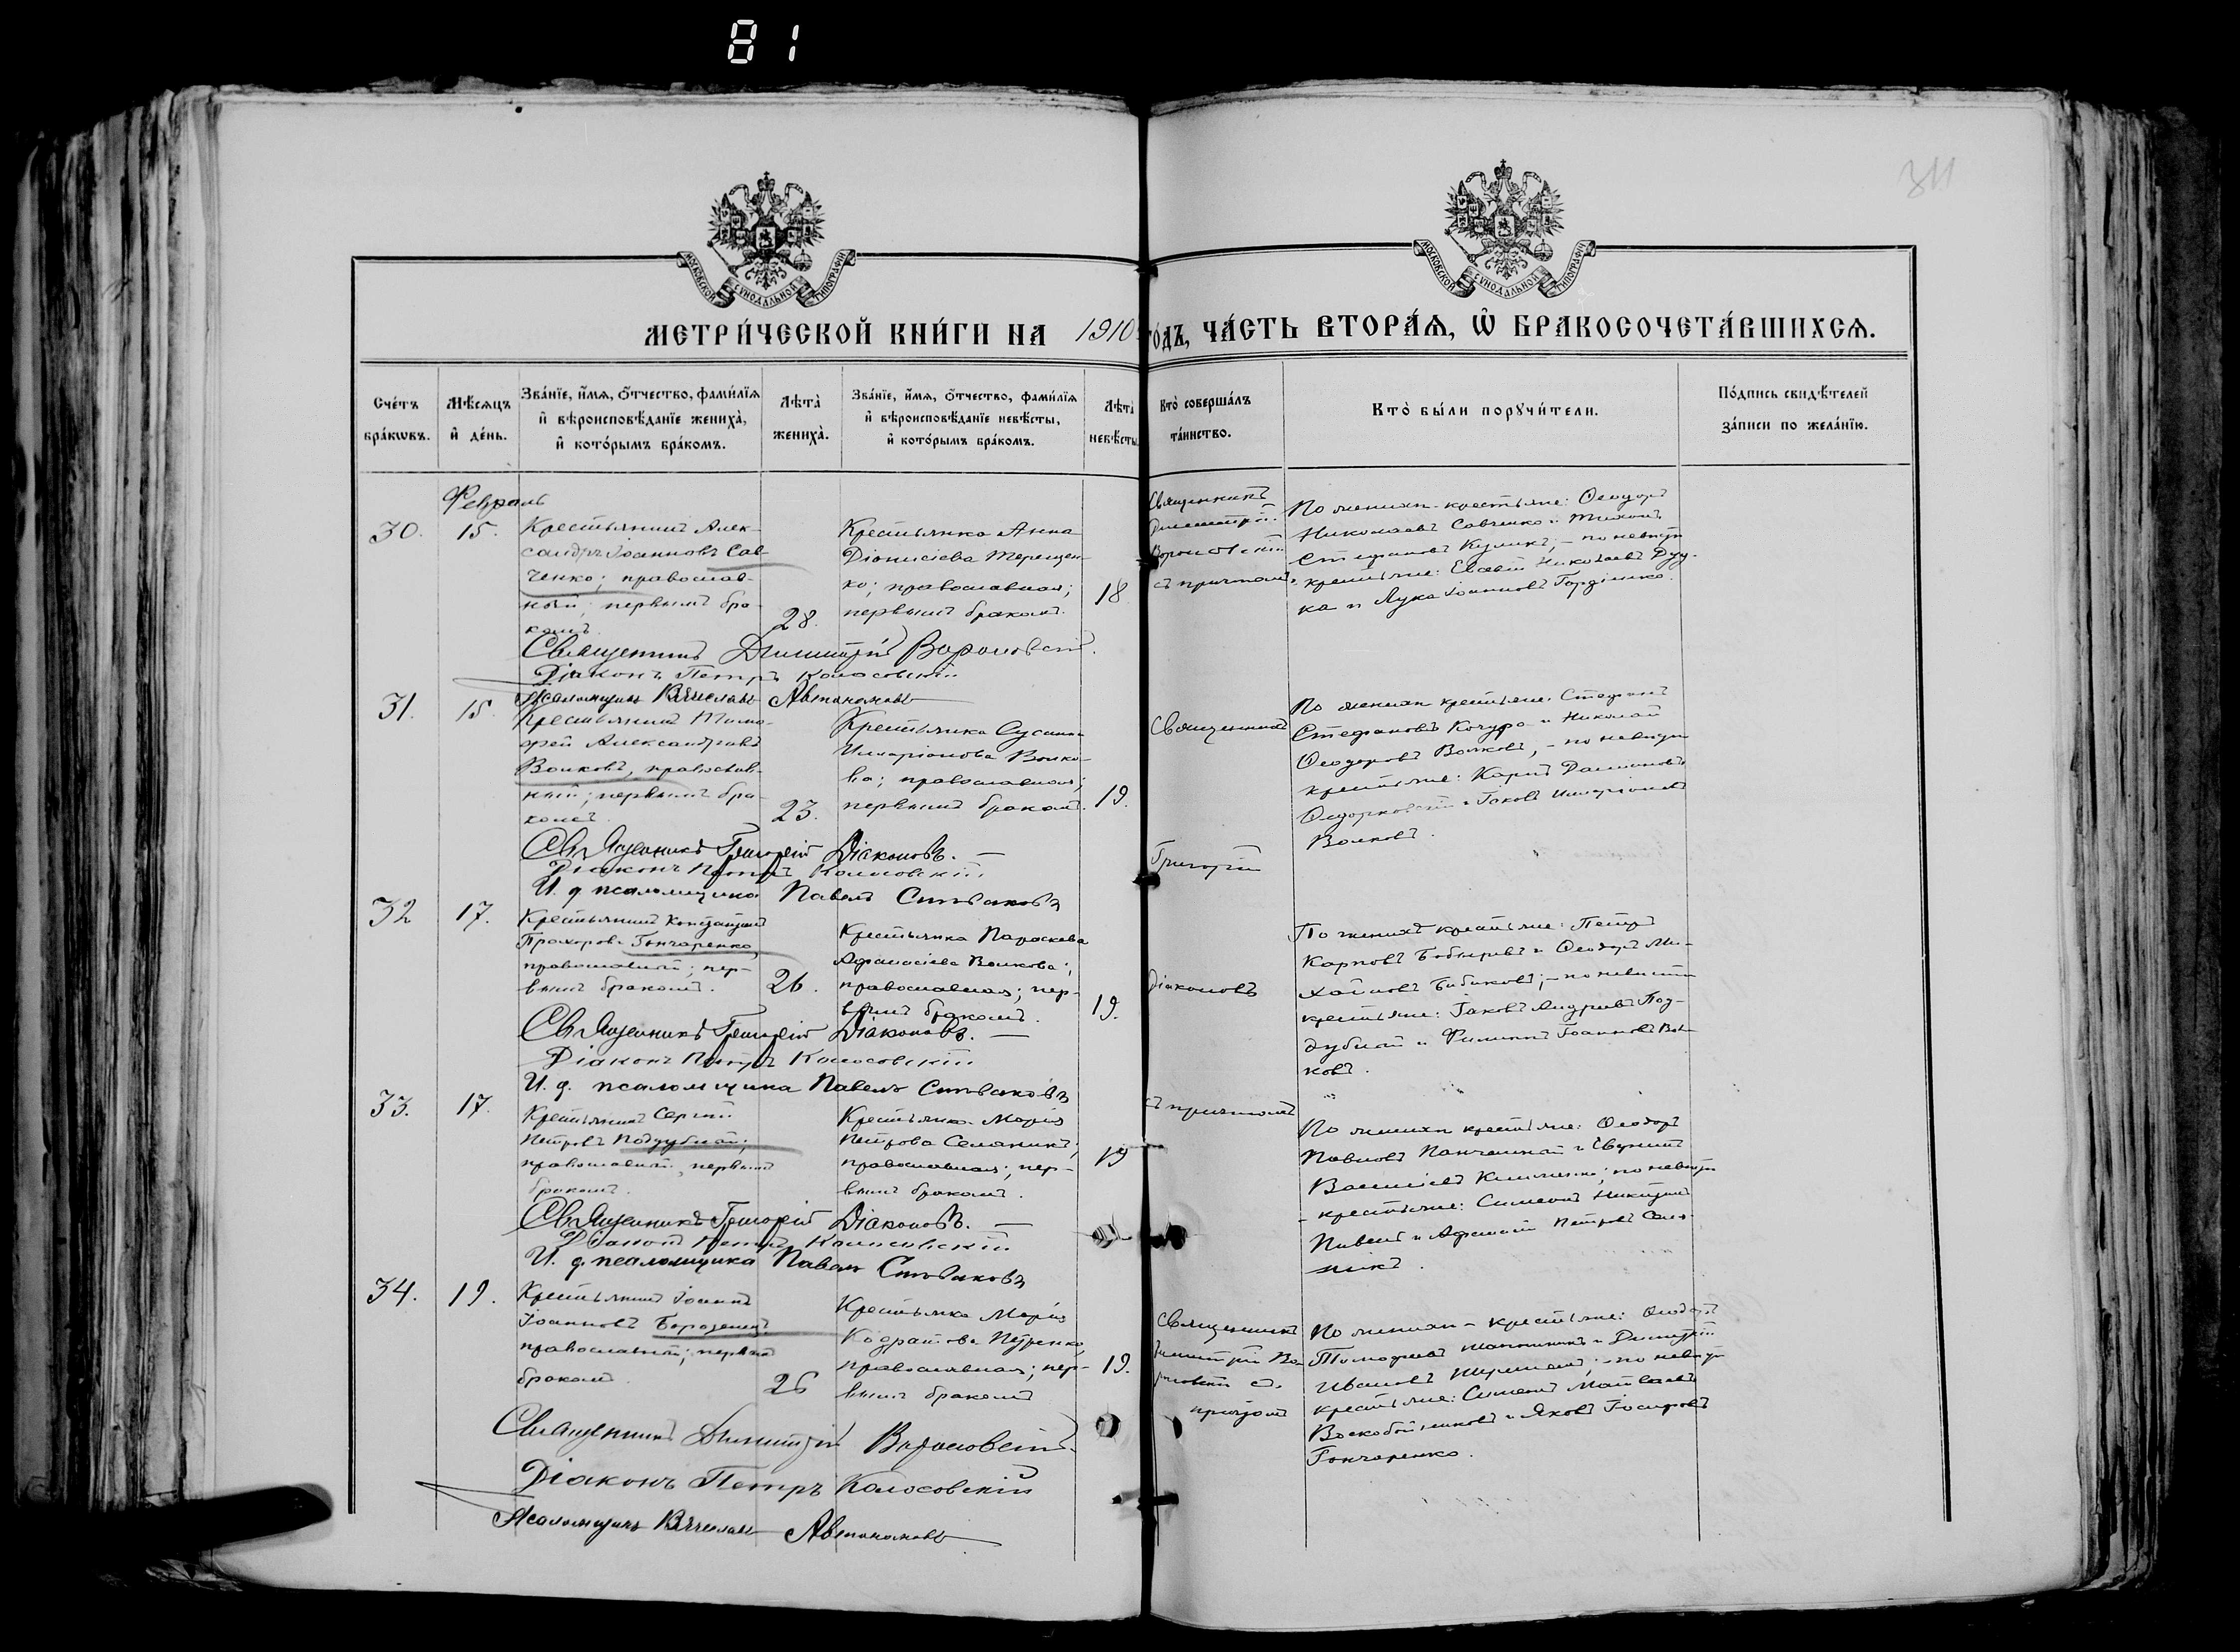 81
311
МОСКОВСКОЙ СѴНОДАЛЬНОЙ ТИПОГРАФІИ
МОСКОВСКОЙ СѴНОДАЛЬНОЙ ТИПОГРАФІИ
МЕТРИ́ЧЕСКОЙ КНИ́ГИ НА 1910 ГО́ДЪ, ЧА́СТЬ ВТОРА́Ѧ, Ѽ БРАКОСОЧЕТА́ВШИХСѦ.
Сче́тъ бра́кѡвъ.
Мѣ́сѧцъ и҆ де́нь.
Зва́нїе, и҆́мѧ, ѻ҆́тчество, фами́лїѧ и҆ вѣроисповѣ́данїе жениха̀, и҆ кото́рымъ бра́комъ.
Лѣта̀ жениха̀.
Зва́нїе, и҆́мѧ, ѻ҆́тчество, фами́лїѧ и҆ вѣроисповѣ́данїе невѣ́сты, и҆ кото́рымъ бра́комъ.
Лѣта̀ невѣ́сты
Кто̀ соверша́лъ та́инство.
Кто̀ бы́ли порꙋчи́тели.
По́дпись свидѣ́телей за́писи по жела́нїю.
Февраль
30.
15.
Крестьянинъ Алек-
сандръ Іоанновъ Сав-
ченко; православ-
ный; первымъ бра-
комъ.
28.
Крестьянка Анна
Діонисіева Терещен-
ко; православная;
первымъ бракомъ.
18
Священникъ
Димитрій
Вороновскій
съ причтомъ.
По женихѣ крестьяне: Ѳеодоръ
Николаевъ Савченко и Тихонъ
Стефановъ Куликъ; - по невѣстѣ
крестьяне: Евсевій Николаевъ Дуд-
ка и Лука Іоанновъ Гордіенко.
Священникъ Димитрій Вороновскій.
Діаконъ Петръ Колосовскій
Псаломщикъ Вячеславъ Автономовъ
31.
15.
Крестьянинъ Тимо-
фей Александровъ
Волковъ, православ-
ный; первымъ бра-
комъ.
23.
Крестьянка Сусанна
Иларіонова Волко-
ва; православная;
первымъ бракомъ.
19.
Священникъ
По женихѣ крестьяне: Стефанъ
Стефановъ Кочура и Николай
Ѳеодоровъ Волковъ, - по невѣстѣ
крестьяне: Карпъ Даміановъ
и Іаковъ Иларіоновъ
Волковъ.
Священникъ Григорій Діаконовъ. —
Діаконъ Петръ Колосовскій
И. д. псаломщика Павелъ Спѣваковъ
Григорій
32
17.
Крестьянинъ Константинъ
Прохоровъ Гончаренко,
православный; пер-
вымъ бракомъ.
26.
Крестьянка Параскева
Афанасіева Волкова;
православная; пер-
вымъ бракомъ.
19.
Діаконовъ
По женихѣ крестьяне: Петръ
Карповъ Бобыревъ и Ѳеодоръ Ми-
хайловъ Бибиковъ; - по невѣстѣ
крестьяне: Іаковъ Андреевъ Под-
дубный и Филиппъ Іоанновъ Вол-
ковъ.
Священникъ Григорій Діаконовъ. —
Діаконъ Петръ Колосовскій
И. д. псаломщика Павелъ Спѣваковъ
33.
17.
Крестьянинъ Сергій
Петровъ Поддубный;
православный, первымъ
бракомъ.
Крестьянка Марія
Петрова Селяникъ;
православная; пер-
вымъ бракомъ.
19
съ причтомъ
По женихѣ крестьяне: Ѳеодоръ
Павловъ и
Василіевъ; по невѣстѣ
- крестьяне: Симеонъ Никитинъ
и Петровъ Селя-
никъ.
Священникъ Григорій Діаконовъ. —
Діаконъ Петръ Колосовскій
И. д. псаломщика Павелъ Спѣваковъ
34.
19.
Крестьянинъ Іоаннъ
Іоанновъ Бородинецъ
православный; первымъ
бракомъ.
26
Крестьянка Марія
Кодратова Петренко,
православная; пер-
вымъ бракомъ
19.
Священникъ
Димитрій Во-
роновскій съ
причтомъ
По женихѣ - крестьяне:
Тимофеевъ и Димитрій
Ивановъ; - по невѣстѣ
крестьяне: Симеонъ Матвѣевъ
Воскобойниковъ и Яковъ Іосифовъ
Гончаренко.
Священникъ Димитрій Вороновскій.
Діаконъ Петръ Колосовскій
Псаломщикъ Вячеславъ Автономовъ